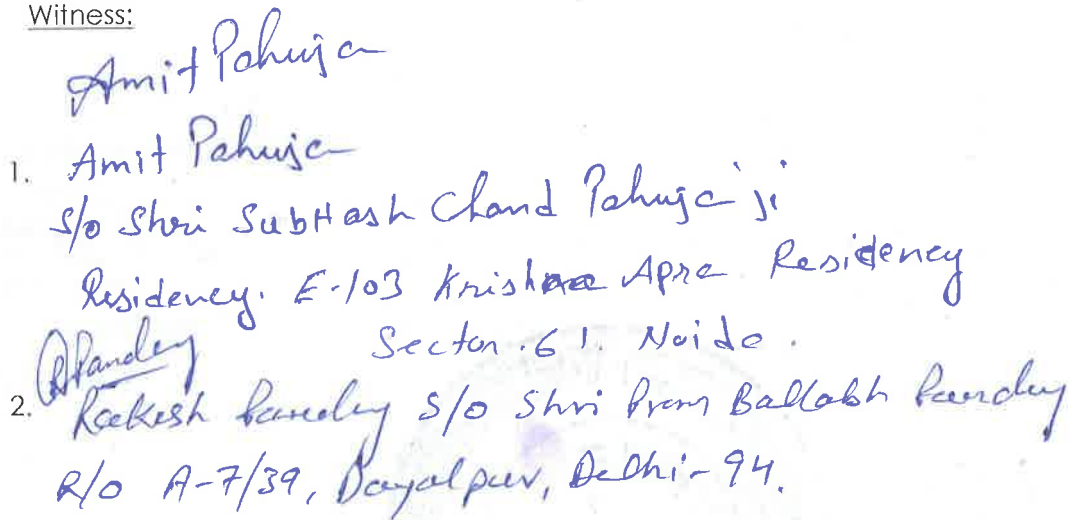 Witness:
Amit Pahuja
1. Amit Pahuja
S/o Shri SubHash Chand Pahuja ji
Residency. E-103 Krishna Apra Residency
Sector.61. Noida.
RPandey
2. Rakesh Pandey S/o Shri Prem Ballabh Pandey
R/o A-7/39, Dayalpur, Delhi-94.